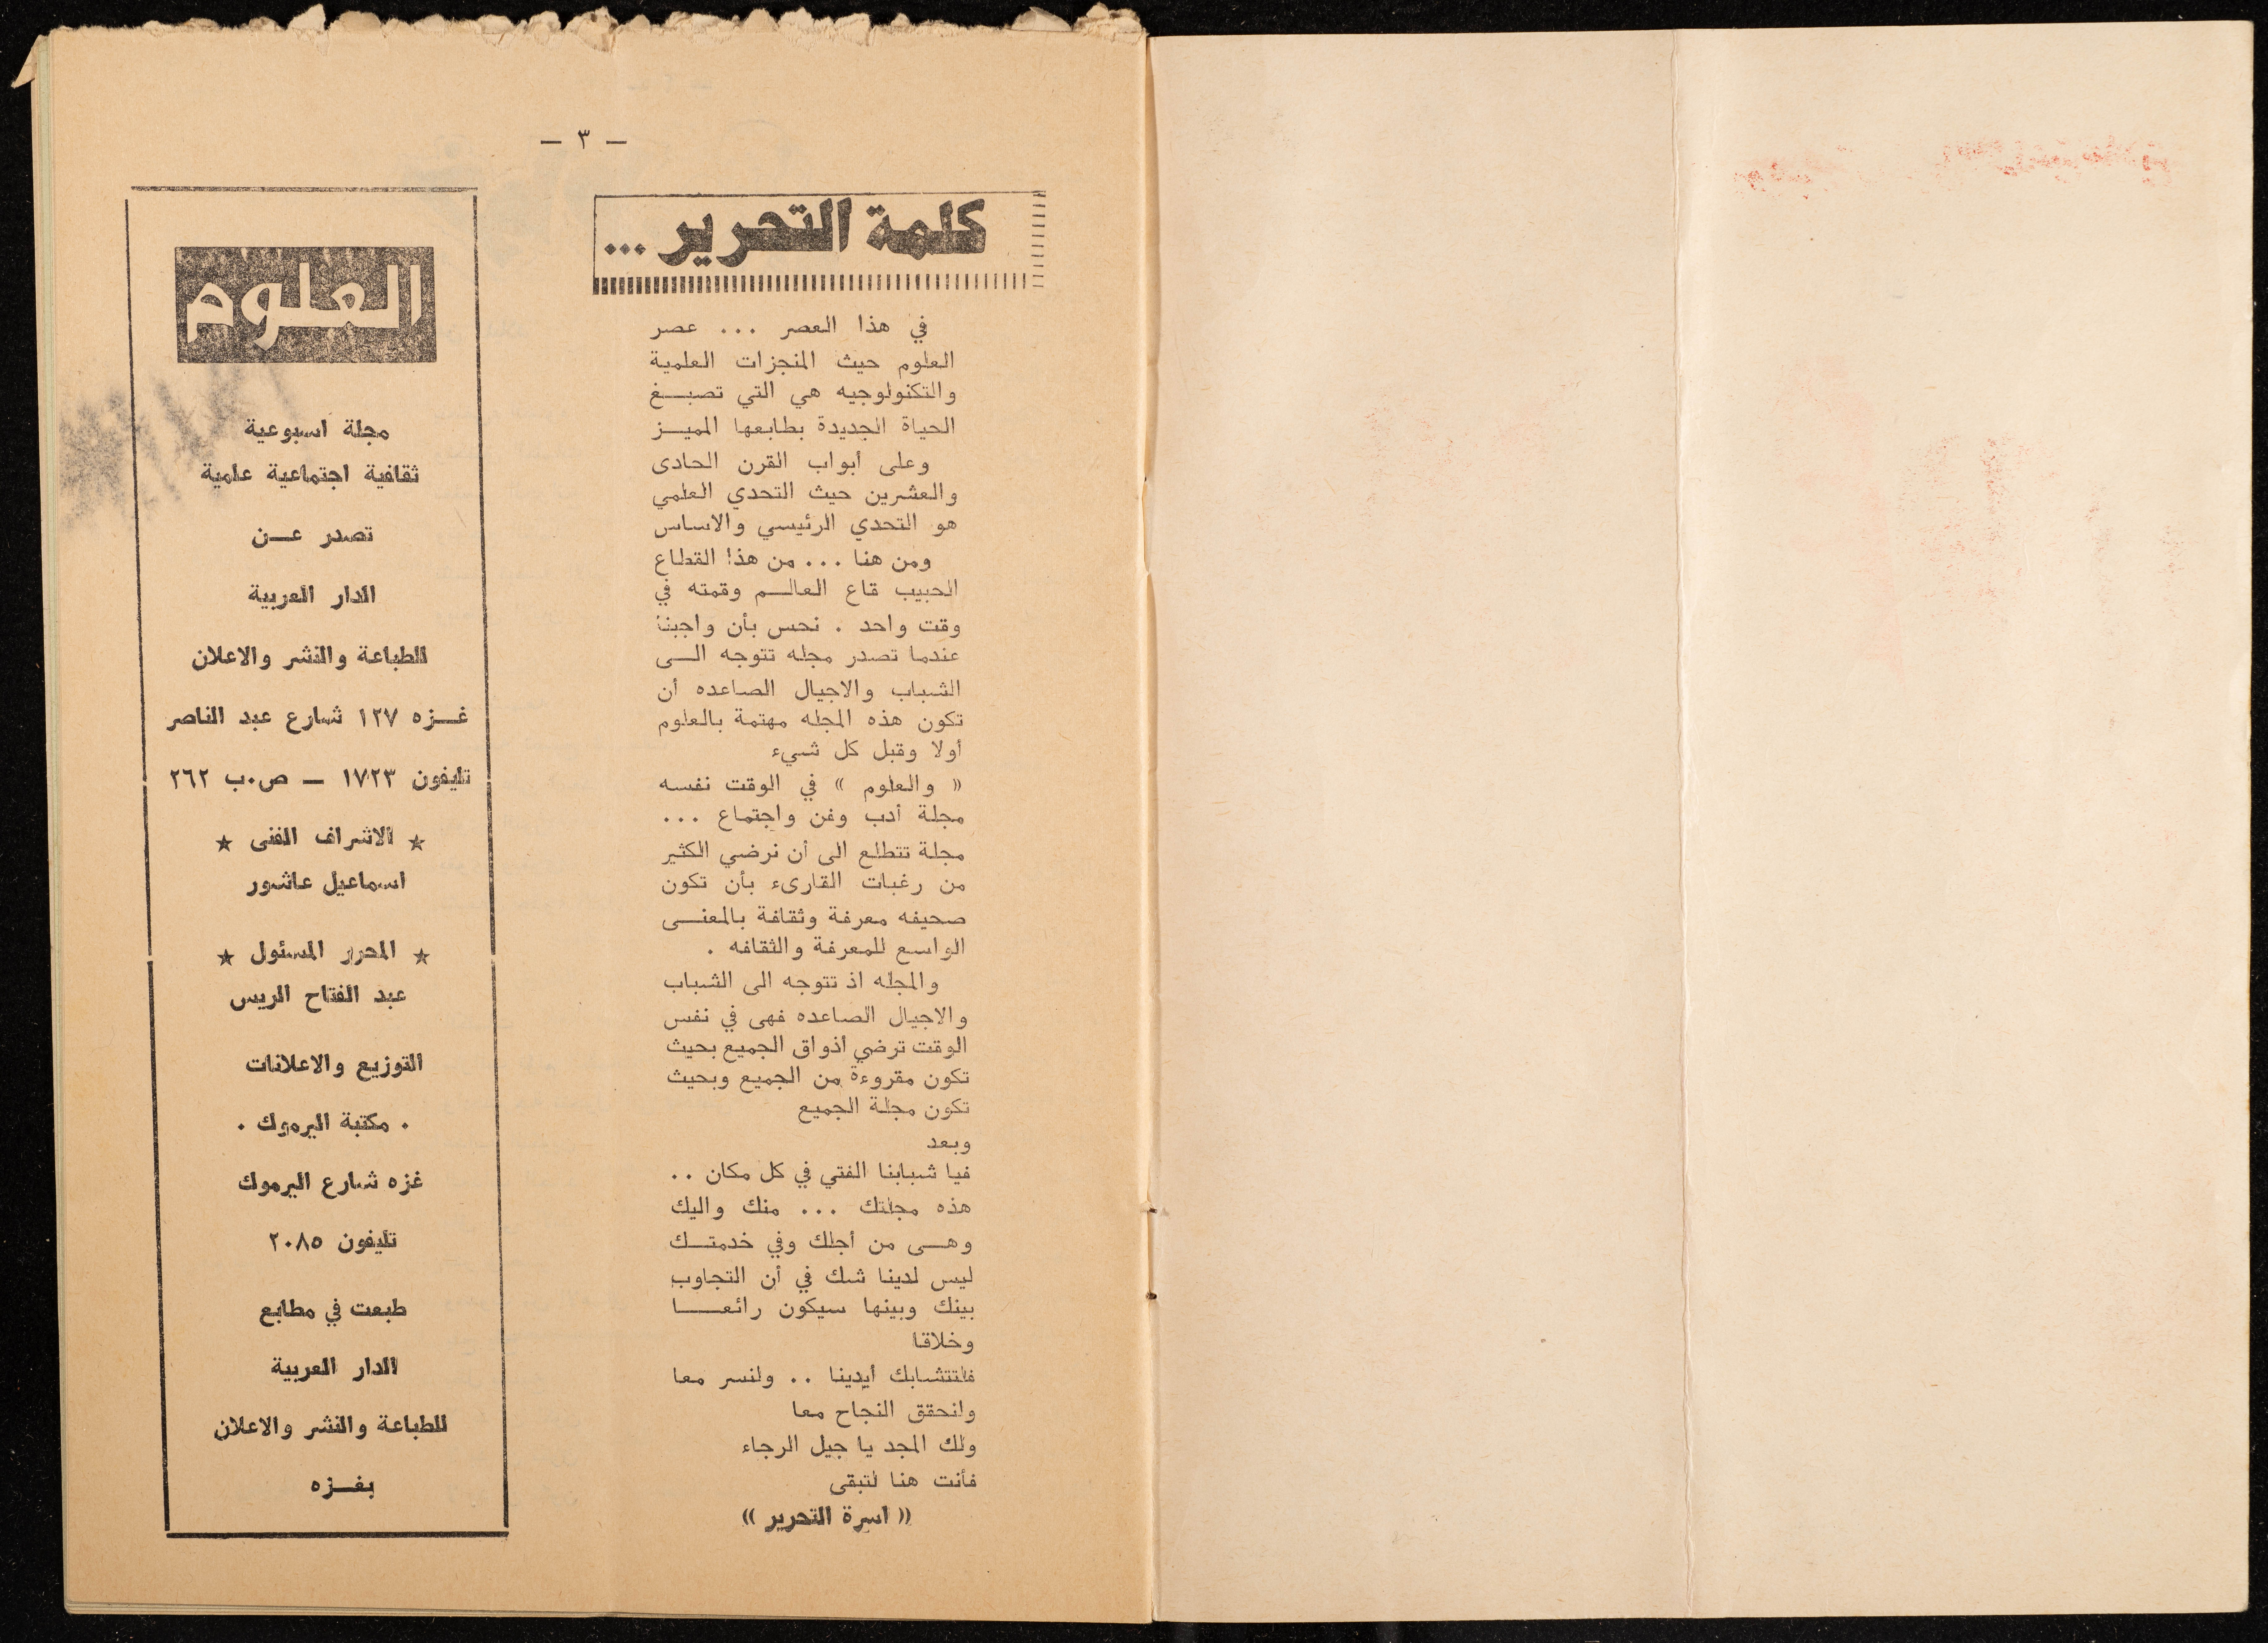 — ٣ —
كلمة التحرير ...
في هذا العصر ... عصر
العلوم حيث المنجزات العلمية
والتكنولوجيه هي التي تصبـــغ
الحياة الجديدة بطابعها المميـــز
وعلى أبواب القرن الحادى
والعشرين حيث التحدي العلمي
هو التحدي الرئيسي والاساس
ومن هنا ... من هذا القطاع
الحبيب قاع العالـــم وقمته في
وقت واحد . نحس بأن واجبنا
عندما تصدر مجله تتوجه الـــى
الشباب والاجيال الصاعده أن
تكون هذه المجله مهتمة بالعلوم
أولا وقبل كل شيء
« والعلوم » في الوقت نفسه
مجلة أدب وفن واجتماع ...
مجلة تتطلع الى أن نرضي الكثير
من رغبات القارىء بأن تكون
صحيفه معرفة وثقافة بالمعنـــى
الواسع للمعرفة والثقافه .
والمجله اذ تتوجه الى الشباب
والاجيال الصاعده فهى في نفس
الوقت ترضي أذواق الجميع بحيث
تكون مقروءة من الجميع وبحيث
تكون مجلة الجميع
وبعد
فيا شبابنا الفتي في كل مكان ..
هذه مجلتك ... منك واليك
وهـــى من أجلك وفي خدمتـــك
ليس لدينا شك في أن التجاوب
بينك وبينها سيكون رائعـــــا
وخلاقا
فلتتشابك أيدينا .. ولنسر معا
ولنحقق النجاح معا
ولك المجد يا جيل الرجاء
فأنت هنا لتبقى
(( اسرة التحرير ))
العلوم
مجلة اسبوعية
ثقافية اجتماعية علمية
تصدر عـــن
الدار العربية
للطباعة والنشر والاعلان
غـــزه ١٢٧ شارع عبد الناصر
تليفون ١٧٢٣ — ص.ب ٢٦٢
★ الاشراف الفنى ★
اسماعيل عاشور
★ المحرر المسئول ★
عبد الفتاح الريس
التوزيع والاعلانات
. مكتبة اليرموك .
غزه شارع اليرموك
تليفون ٢٠٨٥
طبعت في مطابع
الدار العربية
للطباعة والنشر والاعلان
بغـــزه